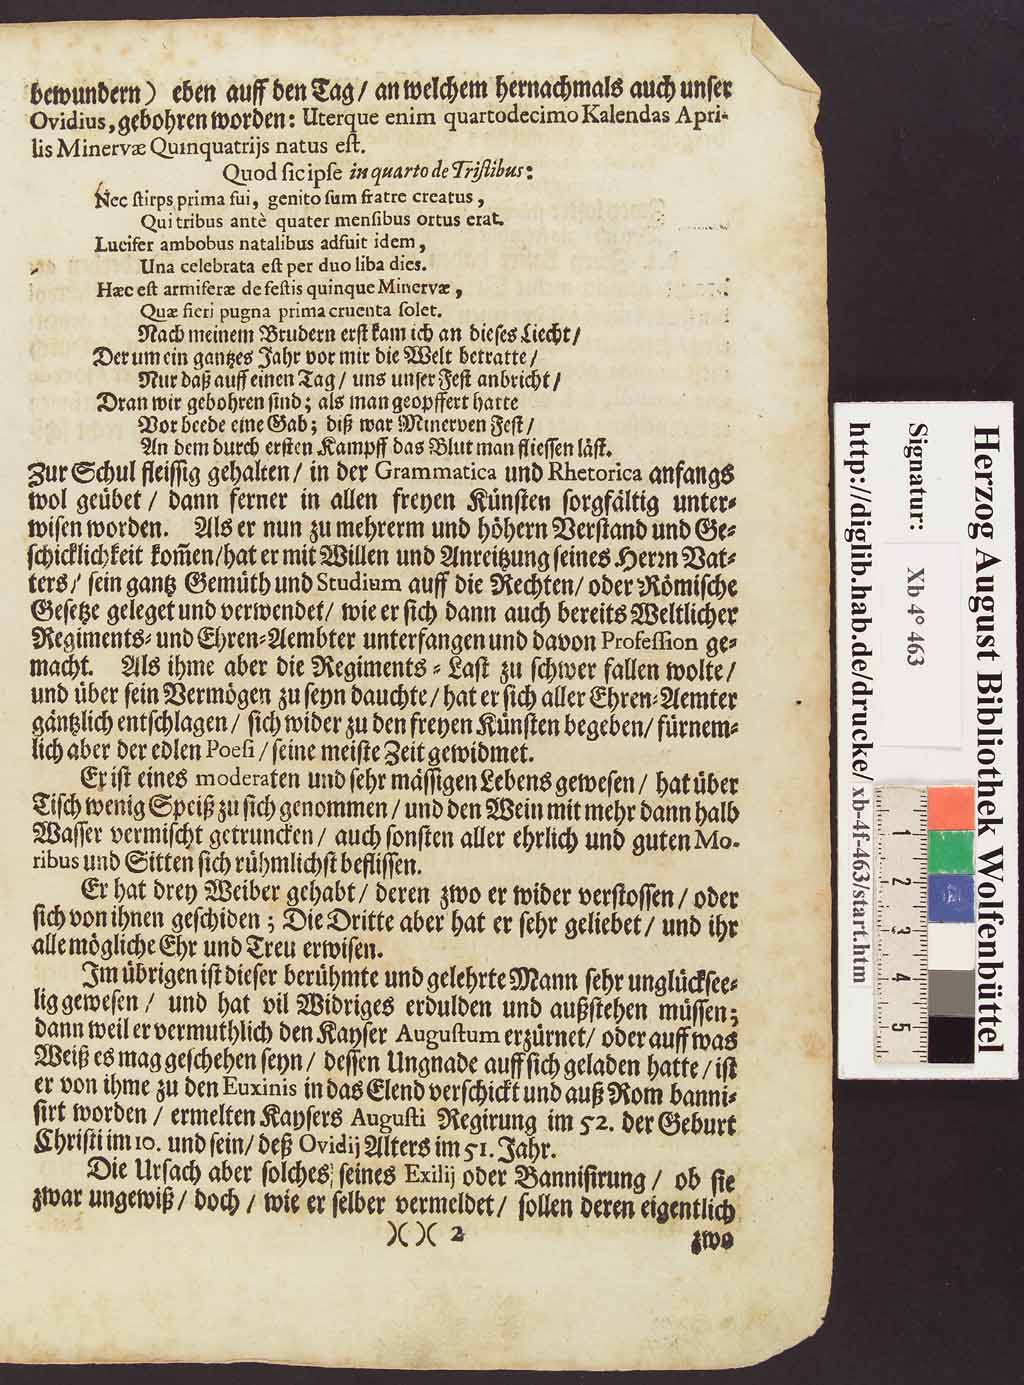 bewundern) eben auff den Tag / an welchem hernachmals auch unser
Ovidius, gebohren worden: Uterque enim quartodecimo Kalendas Apri-
lis Minervæ Quinquatrijs natus est.
Quod sic ipse in quarto de Tristibus:
Nec stirps prima fui, genito sum fratre creatus,
Qui tribus antè quater mensibus ortus erat.
Lucifer ambobus natalibus adfuit idem,
Una celebrata est per duo liba dies.
Hæc est armiferæ de festis quinque Minervæ,
Quæ fieri pugna prima cruenta solet.
Nach meinem Brudern erst kam ich an dieses Liecht /
Der um ein gantzes Jahr vor mir die Welt betratte /
Nur daß auff einen Tag / uns unser Fest anbricht /
Dran wir gebohren sind; als man geopffert hatte
Vor beede eine Gab; diß war Minerven Fest /
An dem durch ersten Kampff das Blut man fliessen läst.
Zur Schul fleissig gehalten / in der Grammatica und Rhetorica anfangs
wol geübet / dann ferner in allen freyen Künsten sorgfältig unter-
wisen worden. Als er nun zu mehrerm und höhern Verstand und Ge-
schicklichkeit kom̃en / hat er mit Willen und Anreitzung seines Herrn Vat-
ters / sein gantz Gemüth und Studium auff die Rechten / oder Römische
Gesetze geleget und verwendet / wie er sich dann auch bereits Weltlicher
Regiments- und Ehren-Aembter unterfangen und davon Profession ge-
macht. Als ihme aber die Regiments-Last zu schwer fallen wolte /
und über sein Vermögen zu seyn dauchte / hat er sich aller Ehren-Aemter
gäntzlich entschlagen / sich wider zu den freyen Künsten begeben / fürnem-
lich aber der edlen Poesi / seine meiste Zeit gewidmet.
Er ist eines moderaten und sehr mässigen Lebens gewesen / hat über
Tisch wenig Speiß zu sich genommen / und den Wein mit mehr dann halb
Wasser vermischt getruncken / auch sonsten aller ehrlich und guten Mo-
ribus und Sitten sich rühmlichst beflissen.
Er hat drey Weiber gehabt / deren zwo er wider verstossen / oder
sich von ihnen geschiden; Die Dritte aber hat er sehr geliebet / und ihr
alle mögliche Ehr und Treu erwisen.
Im übrigen ist dieser berühmte und gelehrte Mann sehr unglücksee-
lig gewesen / und hat vil Widriges erdulden und außstehen müssen;
dann weil er vermuthlich den Kayser Augustum erzürnet / oder auff was
Weiß es mag geschehen seyn / dessen Ungnade auff sich geladen hatte / ist
er von ihme zu den Euxinis in das Elend verschickt und auß Rom banni-
sirt worden / ermelten Kaysers Augusti Regirung im 52. der Geburt
Christi im 10. und sein / deß Ovidij Alters im 51. Jahr.
Die Ursach aber solches seines Exilij oder Bannisirung / ob sie
zwar ungewiß / doch / wie er selber vermeldet / sollen deren eigentlich
)( )( 2
zwo
Herzog August Bibliothek Wolfenbüttel
Signatur: Xb 4° 463
http://diglib.hab.de/drucke/xb-4f-463/start.htm
1 2 3 4 5